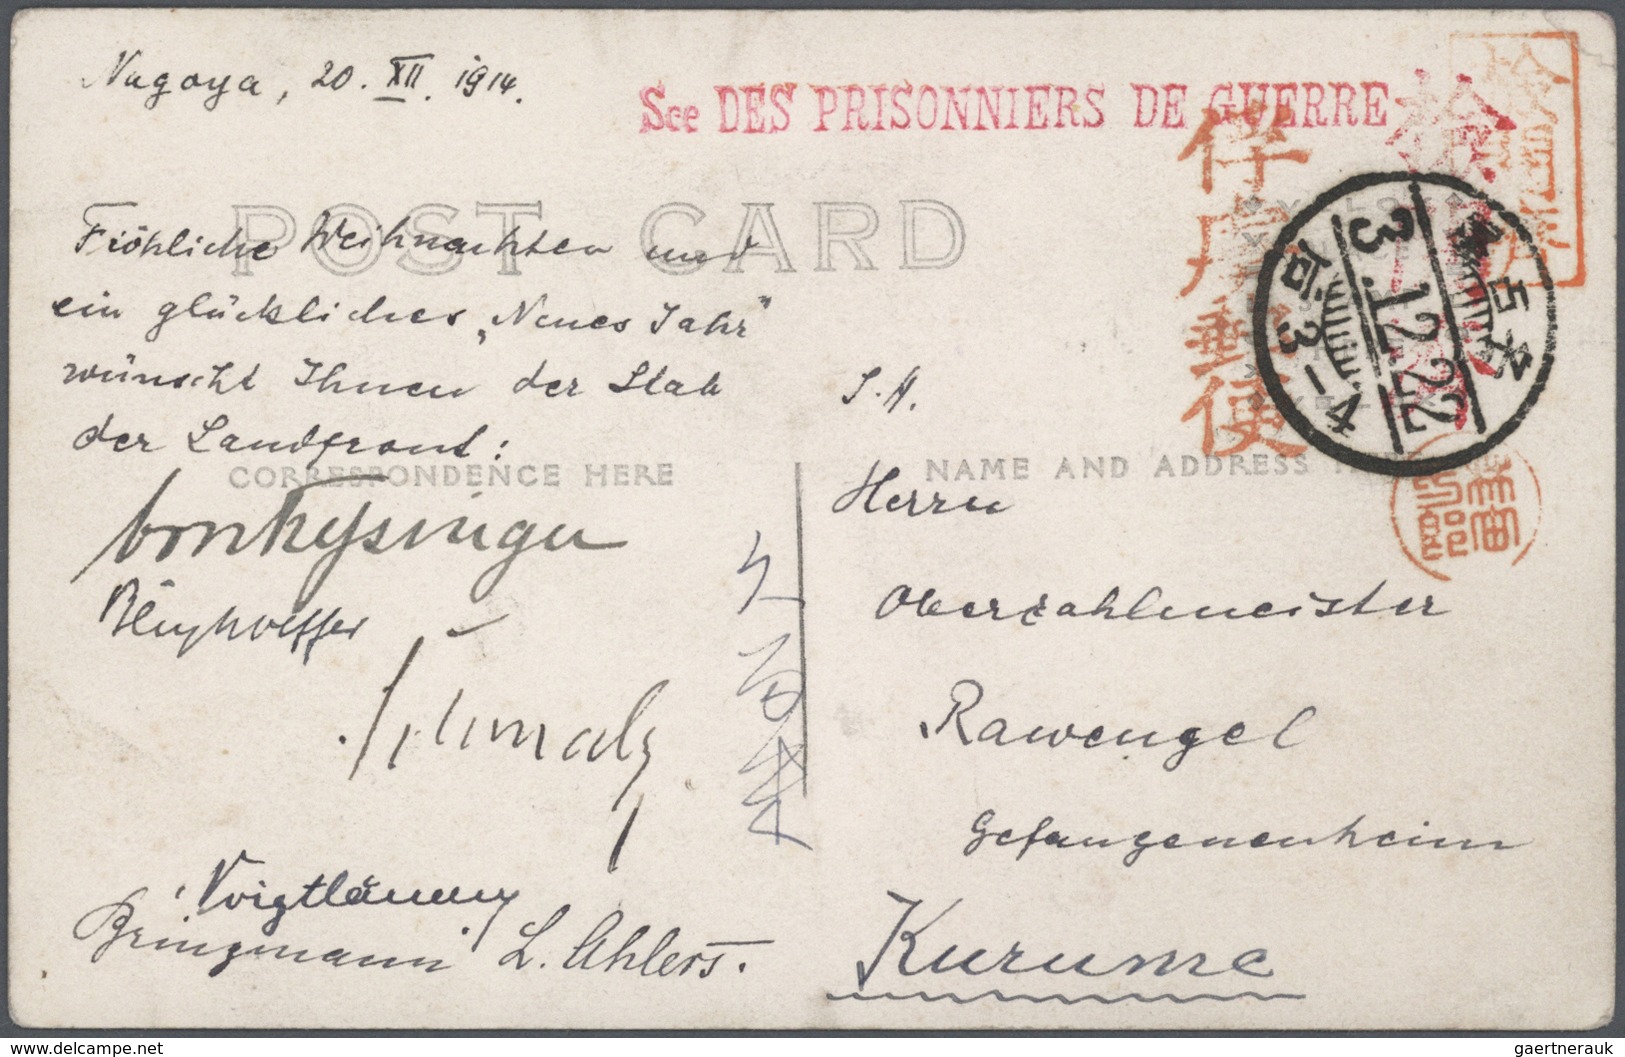 Nagoya, 20. XII. 1914.
Sce DES PRISONNIERS DE GUERRE
POST CARD
Fröhliche Weihnachten und
ein glückliches „Neues Jahr“
wünscht Ihnen der Stab
der Landfront:
CORRESPONDENCE HERE
Voigtländer
Bringmann L. Ahlers.
俘虜郵便
名古屋
3.12.22
前 3-4
NAME AND ADDRESS HERE
S. H.
Herrn
Oberzahlmeister
Rawengel
Gefangenenheim
Kurume
久留米
gaertnerauk